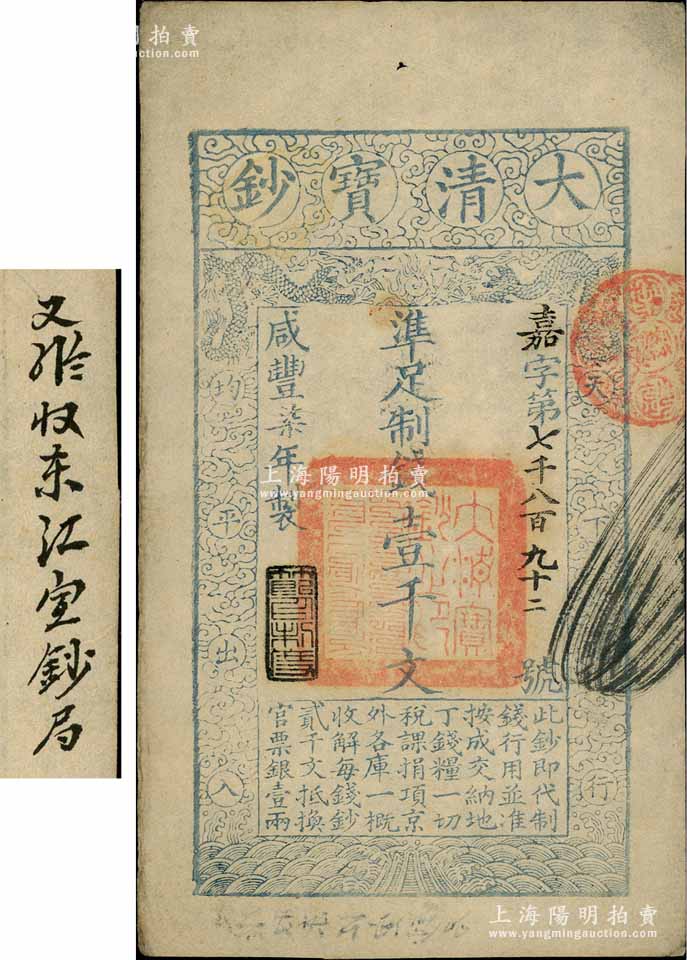 上海陽明拍賣
www.yangmingauction.com
大清寶鈔
嘉字第七千八百九十二號
準足制錢壹千文
咸豐柒年製
天下
行
均平出入
此鈔即代制
錢行用並准
按成交納地
丁錢糧一切
稅課捐項京
外各庫一概
收解每錢鈔
貳千文抵換
官票銀壹兩
大清寶
收東江官鈔局
上海陽明拍賣
www.yangmingauction.com
上海陽明拍賣
www.yangmingauction.com